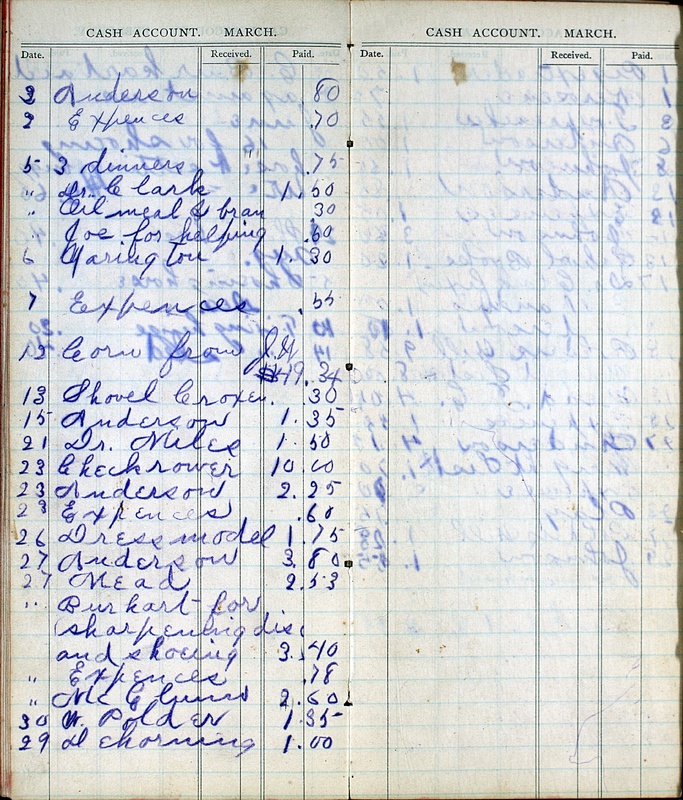 CASH ACCOUNT. MARCH.
Date. Received. Paid.
2 Anderson 80
2 Expences .70
5 3 dinners .75
" Dr. Clark 1.50
" Oil meal & bran 30
" Joe for helping .60
6 Yarington 1.30
7 Expences .55
13 Corn from J.W.
$49.34
13 Shovel 30
15 Anderson 1.35
21 Dr. Miles 1.50
23 Checkrower 10.00
23 Anderson 2.25
23 Expences .60
26 Dress model 1.75
27 Anderson 3.80
27 Mead 2.53
" Burkart for
sharpening disc
and shoeing 3.40
" Expences .78
" 2.60
30 W. Polder 1.35
29 Dehorning 1.00
CASH ACCOUNT. MARCH.
Date. Received. Paid.